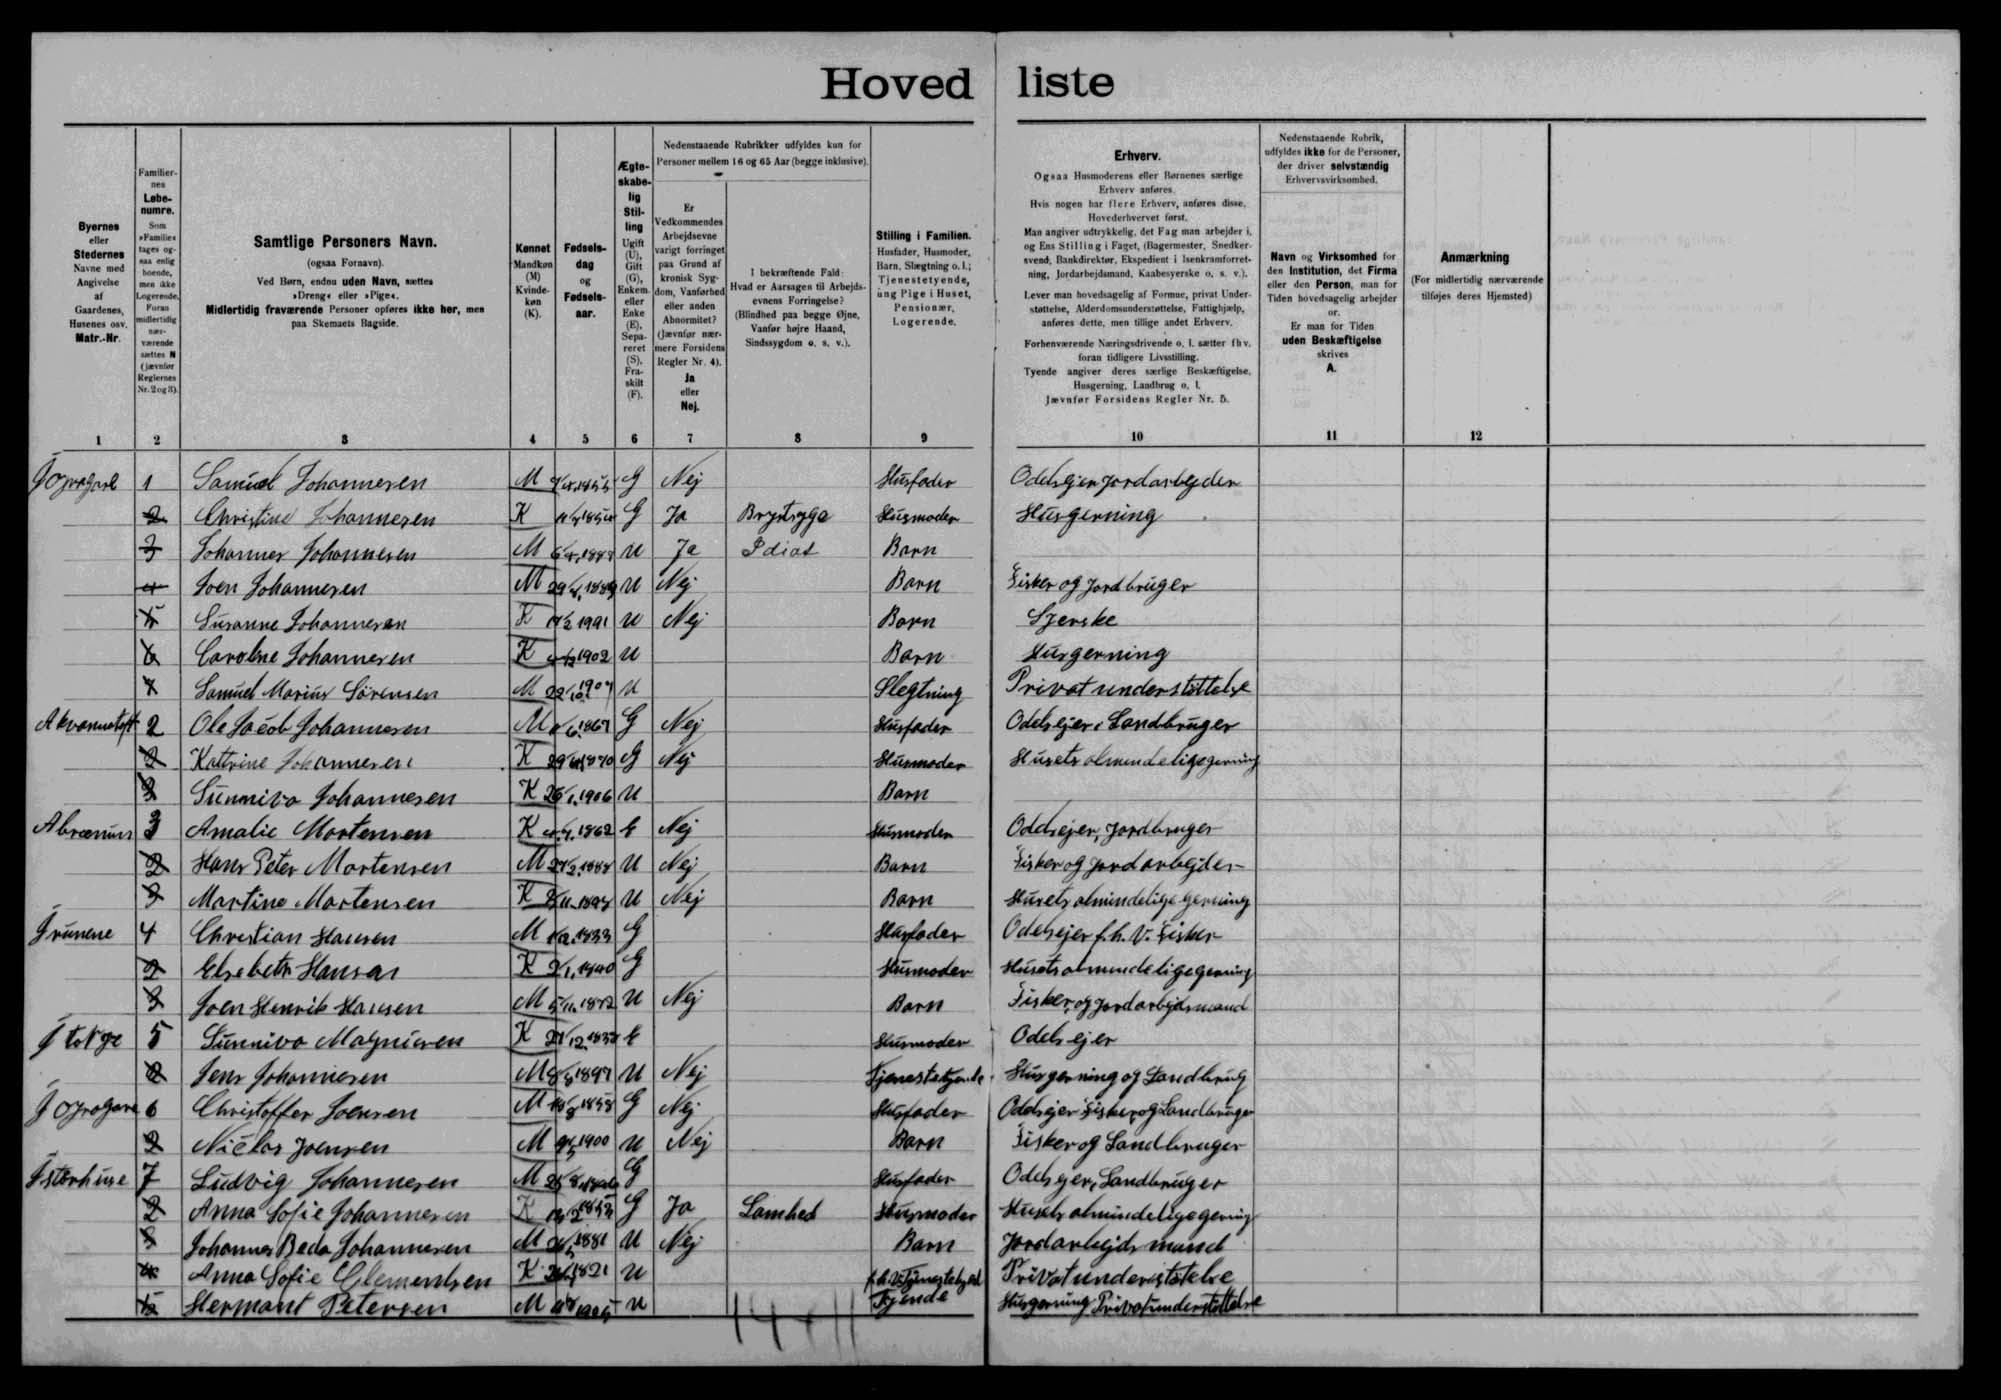 Hoved liste
Byernes eller Stedernes Navne med Angivelse af Gaardenes, Husenes osv. Matr.-Nr.
Familiernes Løbenumre. Som »Familie« tages ogsaa enlig boende, men ikke Logerende, Foran midlertidig nærværende sættes N (jævnfør Reglernes Nr. 2 og 3).
Samtlige Personers Navn.
(ogsaa Fornavn).
Ved Børn, endnu uden Navn, sættes »Dreng« eller »Pige«.
Midlertidig fraværende Personer opføres ikke her, men paa Skemaets Bagside.
Kønnet Mandkøn (M) Kvindekøn (K).
Fødselsdag og Fødselsaar.
Ægteskabelig Stilling Ugift (U), Gift (G), Enkem. eller Enke (E), Separeret (S), Fraskilt (F).
Nedenstaaende Rubrikker udfyldes kun for Personer mellem 16 og 65 Aar (begge inklusive).
Er Vedkommendes Arbejdsevne varigt forringet paa Grund af kronisk Sygdom, Vanførhed eller anden Abnormitet? (Jævnfør nærmere Forsidens Regler Nr. 4). Ja eller Nej.
I bekræftende Fald: Hvad er Aarsagen til Arbejdsevnens Forringelse? (Blindhed paa begge Øjne, Vanfør højre Haand, Sindssygdom o. s. v.).
Stilling i Familien. Husfader, Husmoder, Barn, Slægtning o. l.; Tjenestetyende, ung Pige i Huset, Pensionær, Logerende.
Erhverv.
Ogsaa Husmoderens eller Børnenes særlige Erhverv anføres.
Hvis nogen har flere Erhverv, anføres disse, Hovederhvervet først.
Man angiver udtrykkelig, det Fag man arbejder i, og Ens Stilling i Faget, (Bagermester, Snedkersvend, Bankdirektør, Ekspedient i Isenkramforretning, Jordarbejdsmand, Kaabesyerske o. s. v.).
Lever man hovedsagelig af Formue, privat Understøttelse, Alderdomsunderstøttelse, Fattighjælp, anføres dette, men tillige andet Erhverv.
Forhenværende Næringsdrivende o. l. sætter fhv. foran tidligere Livsstilling.
Tyende angiver deres særlige Beskæftigelse, Husgerning, Landbrug o. l.
Jævnfør Forsidens Regler Nr. 5.
Nedenstaaende Rubrik, udfyldes ikke for de Personer, der driver selvstændig Erhvervsvirksomhed.
Navn og Virksomhed for den Institution, det Firma eller den Person, man for Tiden hovedsagelig arbejder or.
Er man for Tiden uden Beskæftigelse skrives A.
Anmærkning
(For midlertidig nærværende tilføjes deres Hjemsted)
1 2 3 4 5 6 7 8 9 10 11 12
1 Samuel Johannesen M G Nej Husfader Odelsejer Jordarbejder
2 Christine Johannesen K G Ja Brystsyge Husmoder Husgerning
3 Johannes Johannesen M U Ja Idiot Barn
4 Joen Johannesen M U Nej Barn Fisker og Jordbruger
5 Susanne Johannesen K U Nej Barn Syerske
6 Caroline Johannesen K 1902 U Barn Husgerning
7 Samuel Marius Sørensen M U Slegtning Privat understøttelse
2 Ole Jacob Johannesen M G Nej Husfader Odelsejer, Landbruger
2 Kattrine Johannesen K G Nej Husmoder Husets almindelige gerning
3 Sunniva Johannesen K 1906 U Barn
3 Amalie Mortensen K 1862 E Nej Husmoder Odelsejer, Jordbruger
2 Hans Peter Mortensen M U Nej Barn Fisker og Jordarbejder
3 Martine Mortensen K U Nej Barn Husets almindelige gerning
4 Christian Hansen M 1833 G Husfader Odelsejer f.h.v. Fisker
2 Elsebeth Hansen K G Husmoder Husets almindelige gerning
3 Joen Henrik Hansen M U Nej Barn Fisker og Jordarbejdsmand
5 Sunniva Magnusen K E Husmoder Odelsejer
2 Jens Johannesen M 1897 U Nej Tjenestetyende Husgerning og Landbrug
6 Christoffer Joensen M G Nej Husfader Odelsejer Fisker og Landbruger
2 Niclas Joensen M 1900 U Nej Barn Fisker og Landbruger
7 Ludvig Johannesen M G Husfader Odelsejer, Landbruger
2 Anna Sofie Johannesen K G Ja Lamhed Husmoder Husets almindelige gerning
3 Johannes Beda Johannesen M 1881 U Nej Barn Jordarbejdsmand
4 Anna Sofie Clementsen K 1821 U Privatunderstøtelse
5 Hermann Petersen M U Tyende Husgerning Privatunderstøttelse
14 + 11